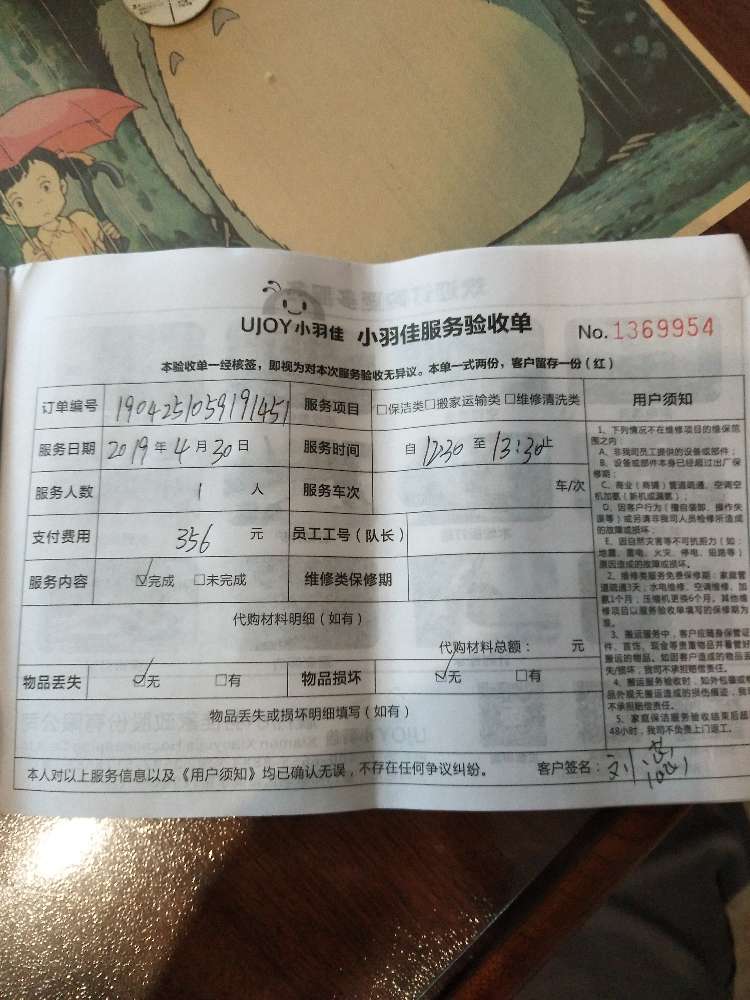 UJOY小羽佳 小羽佳服务验收单 No.1369954
本验收单一经核签，即视为对本次服务验收无异议。本单一式两份，客户留存一份（红）
订单编号 1904251059191451 服务项目 □保洁类□搬家运输类 □维修清洗类
服务日期 2019年4月30日 服务时间 自 12:30 至 13:30止
服务人数 1 人 服务车次 车/次
支付费用 356 元 员工工号（队长）
服务内容 ☑完成 □未完成 维修类保修期
代购材料明细（如有）
代购材料总额： 元
物品丢失 ☑无 □有 物品损坏 ☑无 □有
物品丢失或损坏明细填写（如有）
本人对以上服务信息以及《用户须知》均已确认无误，不存在任何争议纠纷。 客户签名：刘
用户须知
1、下列情况不在维修项目的维保范
围之内：
A、非我司员工提供的设备或部件；
B、设备或部件本身已经超过出厂保
修期；
C、商业（商铺）管道疏通，空调空
机加氟（新机或漏氟）；
D、因客户行为（擅自装卸、操作失
误等）或另请非我司人员检修所造成
的故障或损坏；
E、因自然灾害等不可抗拒力（如：
地震、雷电、火灾、停电、阻路等）
原因造成的故障或损坏。
2、维修类服务免费保修期：家庭管
道疏通3天，水电维修、空调维修、加
氟1个月，压缩机更换6个月，其他维
修项目以服务验收单填写的保修期为
准。
3、搬运服务中，客户应随身保管证
件、首饰、现金等贵重物品并看管好
搬运的物品。如因客户造成的物品丢
失/损坏，我司不承担赔偿责任。
4、搬运服务验收时，如外包装或物
品外观无搬运造成的损伤痕迹，我
不承担赔偿责任。
5、家庭保洁服务验收结束后超
48小时，我司不负责上门返工。